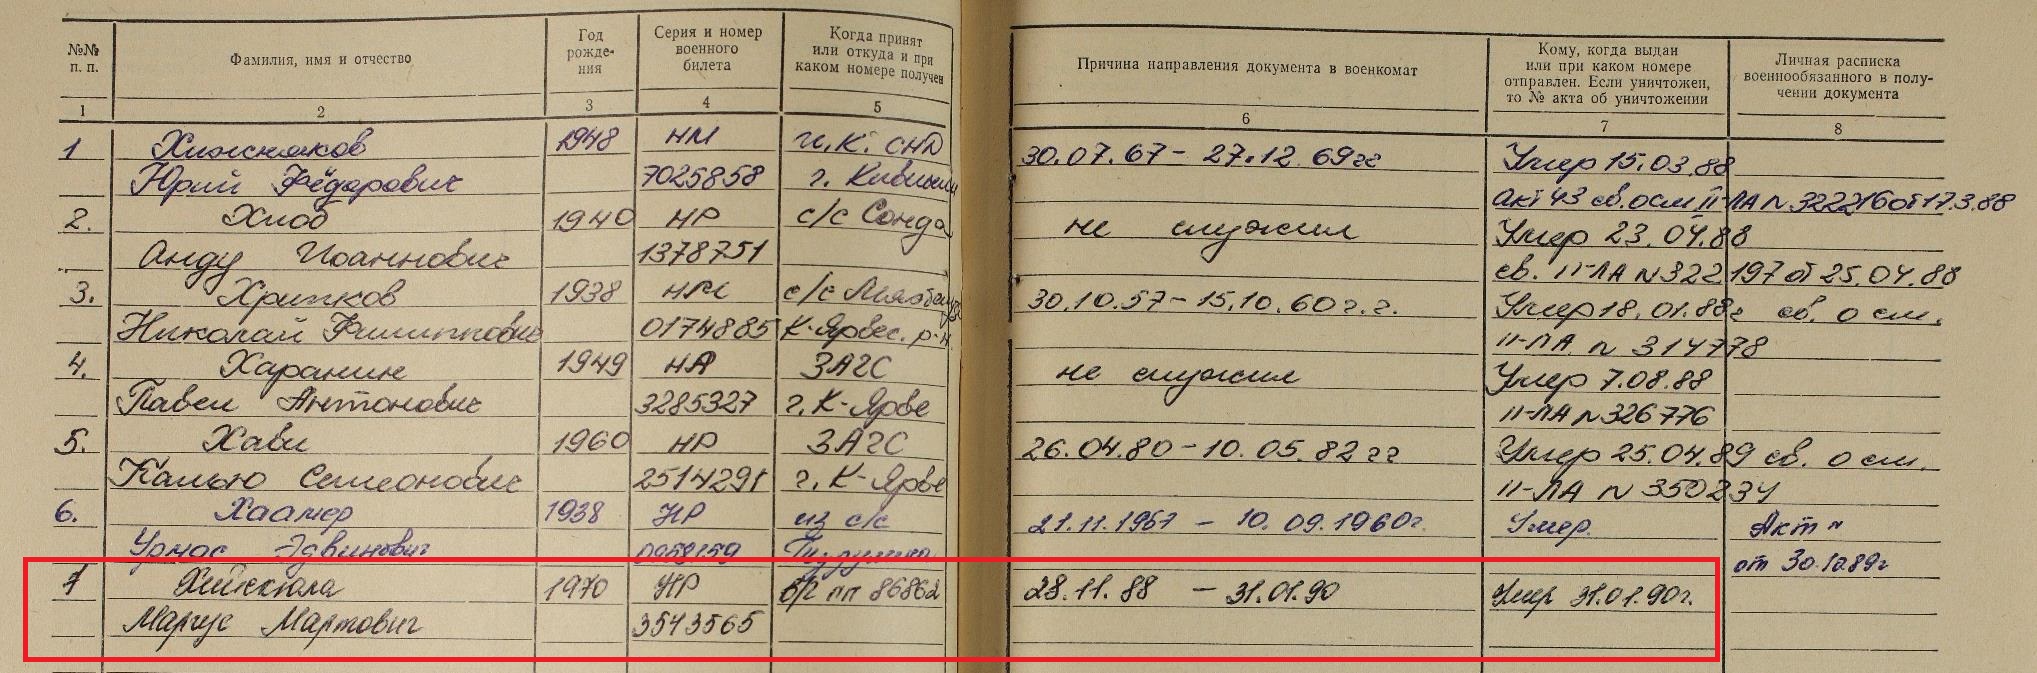 №№ п. п.
Фамилия, имя и отчество
Год рожде-
ния
Серия и номер
военного
билета
Когда принят
или откуда и при
каком номере получен
Причина направления документа в военкомат
Кому, когда выдан
или при каком номере
отправлен. Если уничтожен,
то № акта об уничтожении
Личная расписка
военнообязанного в полу-
чении документа
1 2 3 4 5 6 7 8
1 Хижняков 1948 НМ 30.07.67 – 27.12.69гг Умер 15.03.88
Юрий Фёдорович 7025858 г. акт 43 св. о см II-ЛА N 322216 от 17.3.88
2. Хиоб 1940 НР с/с Сонда не служил Умер 23.04.88
Анду Иоаннович 1378751 св. II-ЛА N 322197 от 25.04.88
3. Хрипков 1938 НМ с/с 30.10.57 – 15.10.60г.г. Умер 18.01.88г св. о см.
Николай Филиппович 0174885 К-Ярвес. р-н. II-ЛА N 314778
4. Харанин 1949 НА ЗАГС не служил Умер 7.08.88
Павел Антонович 3285327 г. К-Ярве II-ЛА N 326776
5. Хави 1960 НР ЗАГС 26.04.80 – 10.05.82гг Умер 25.04.89 св. о см.
Калью Семенович 2514291 г. К-Ярве II-ЛА N 350234
6. Хаамер 1938 НР из с/с 21.11.1957 – 10.09.1960г. Умер. Акт N
Урмас Эдвинович 0959159 от 30.10.89г
7 Хейскюла 1970 НР в/ч пп 86862 28.11.88 – 31.01.90 Умер 31.01.90г.
Маргус Мартович 3543565